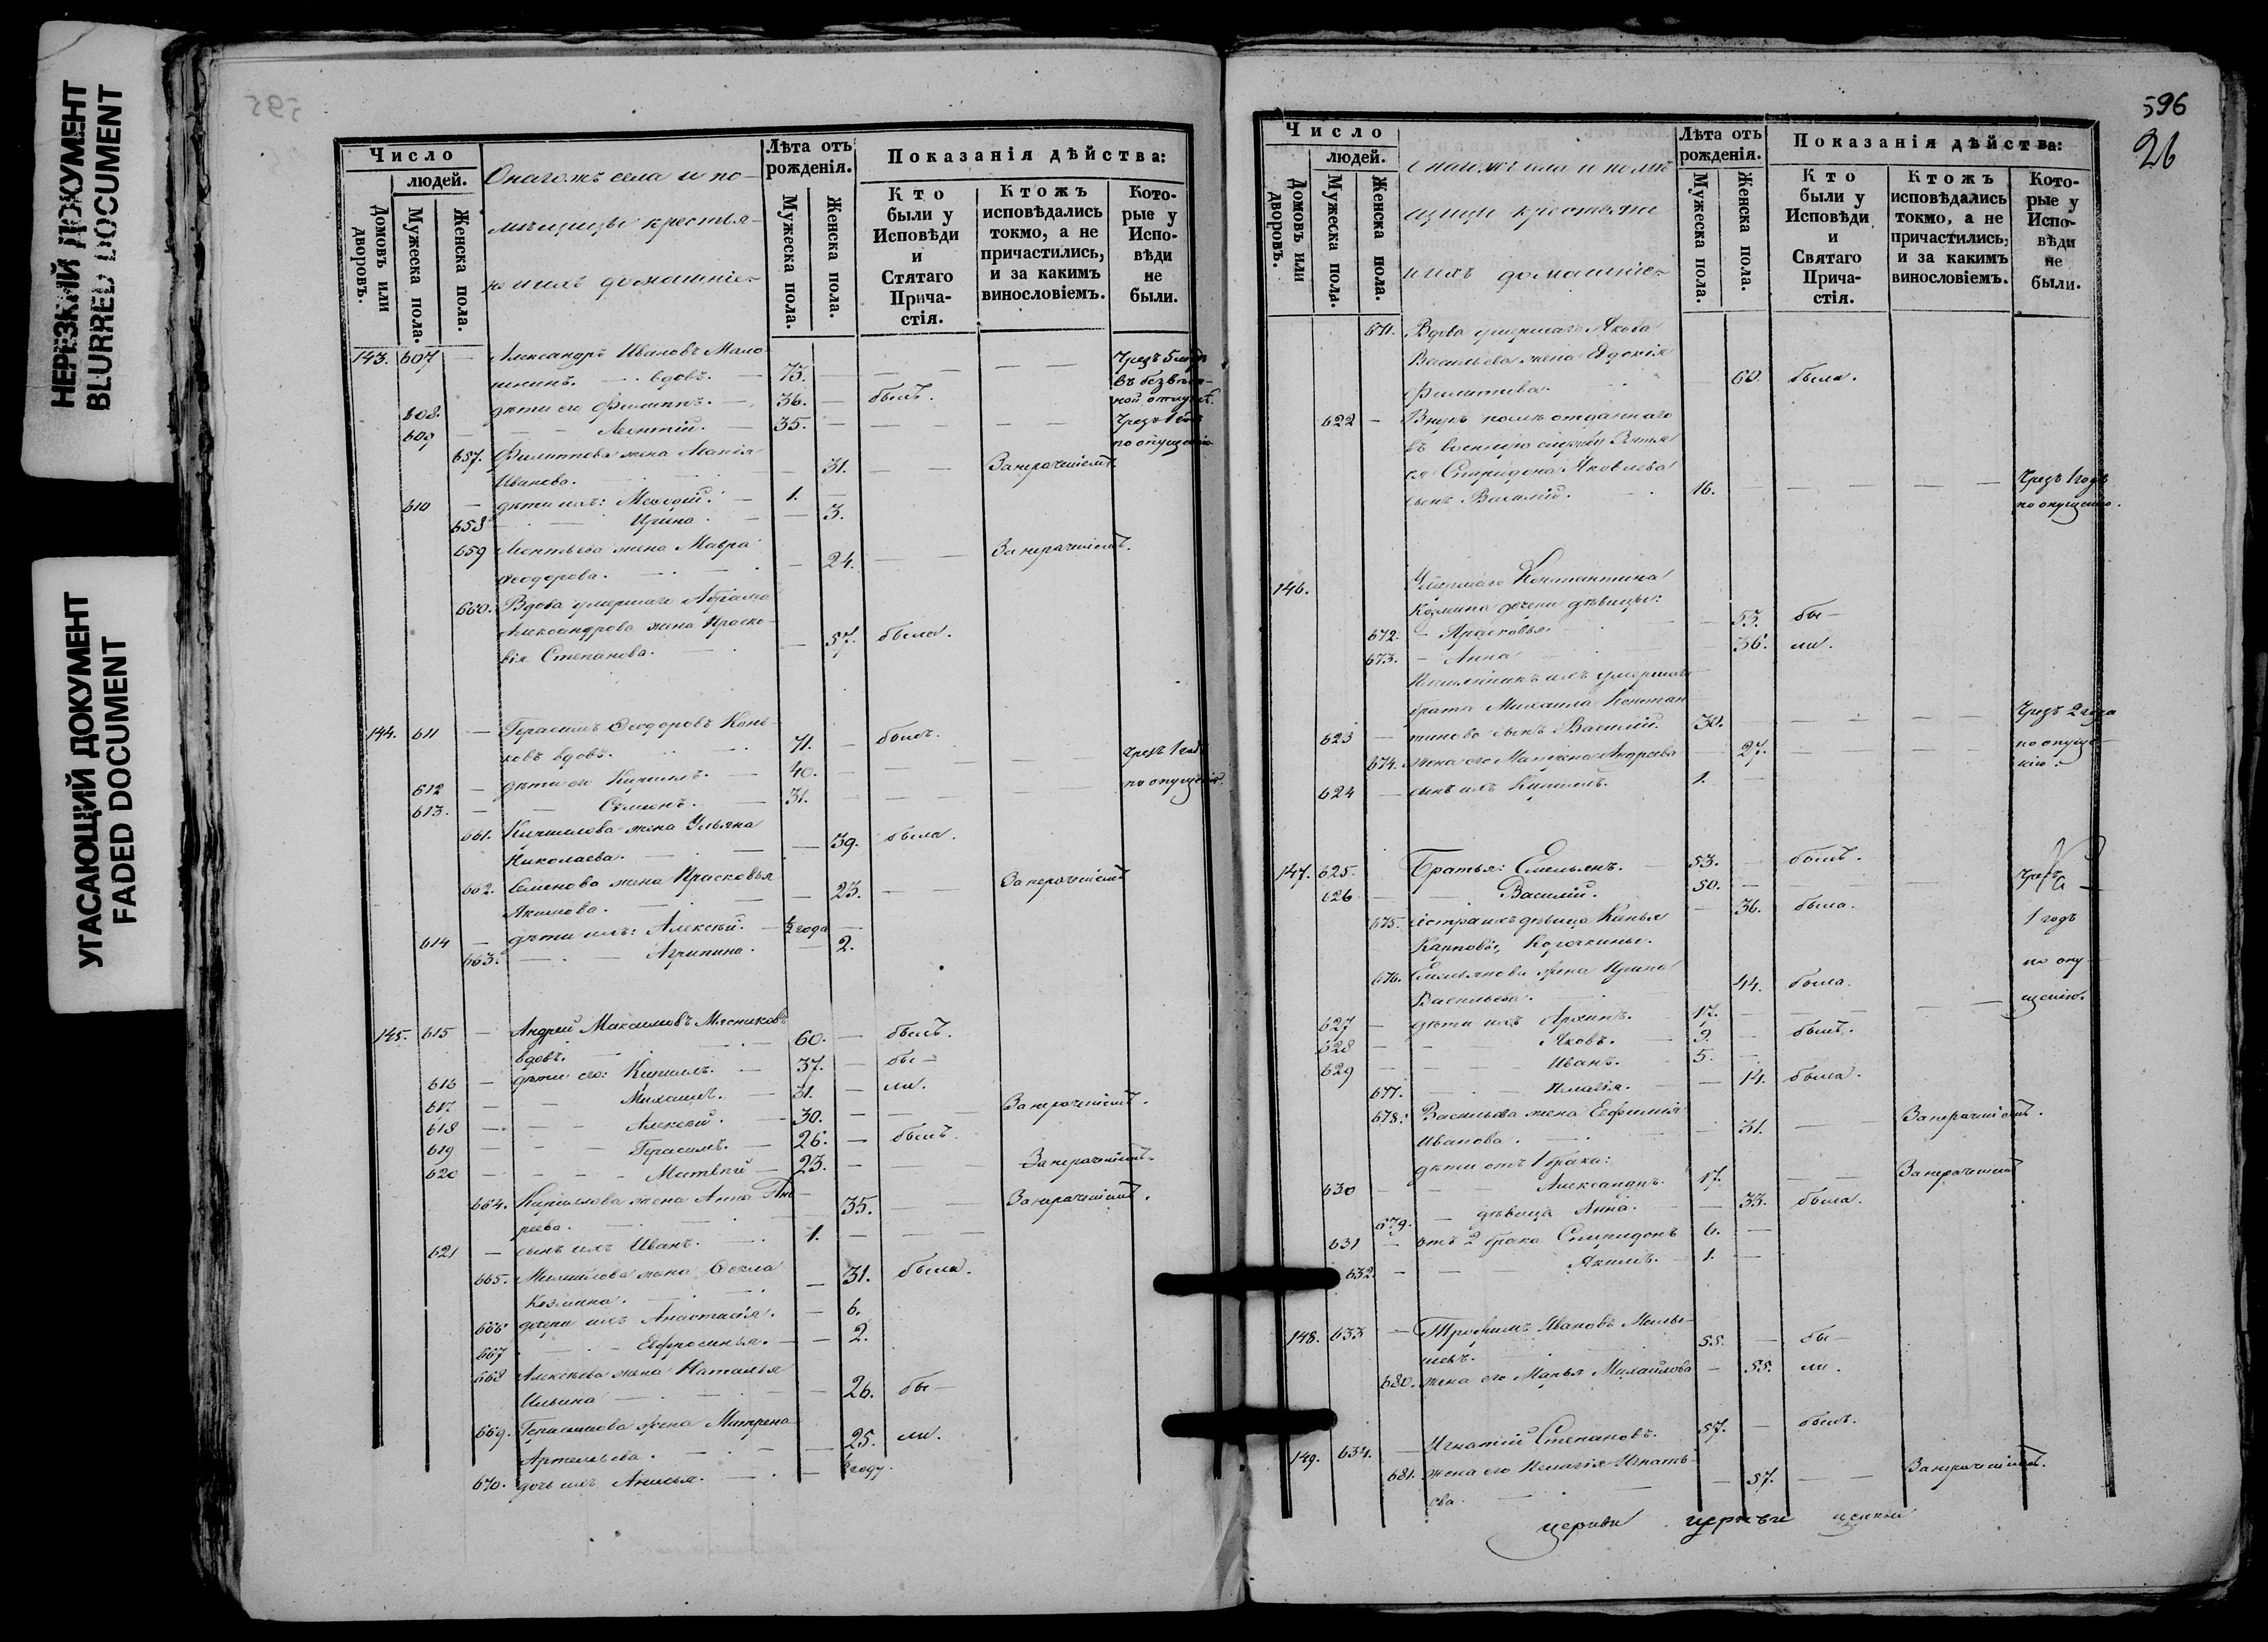 НЕРЕЗКИЙ ДОКУМЕНТ
BLURRED DOCUMENT
УГАСАЮЩИЙ ДОКУМЕНТ
FADED DOCUMENT
595
Число
людей.
Домовъ или дворовъ.
Мужеска пола.
Женска пола.
Онагожъ села и по-
мѣщицы крестья-
не и ихъ домашніе
Лѣта отъ рожденія.
Мужеска пола.
Женска пола.
Показанія дѣйства:
Кто были у Исповѣди и Стятаго Прича-стія.
Ктожъ исповѣдались токмо, а не причастились, и за какимъ винословіемъ.
Кото-рые у Испо-вѣди не были.
143. 607 — Александръ Ивановъ Мало-
шкинъ. — вдовъ. — 73. — — — Чрезъ 5 годъ
въ безвѣст-
608. дѣти его Филиппъ. — 36. — былъ. ной отлучкѣ.
609 — — Леонтій. — 35. — — — Чрезъ 1 годъ
по опущенію
657. Филиппова жена Марія
Иванова. — 31. — — За нерачніемъ.
610 — дѣти ихъ: Меѳодій. — 1. —
658 — Ирина. — — 3.
659 Леонтьева жена Мавра
Ѳеодорова. — 24. — — За нерачніемъ.
660. Вдова умершаго Абрама
Александрова жена Праско-
вія Степанова. — 57. была.
144. 611 — Герасимъ Ѳеодоровъ Конь-
ковъ вдовъ. 71. — былъ.
612 — дѣти его Кириллъ. — 40. — — — Чрезъ 1 годъ
613. — — Семенъ. — 31. — — — по опущенію.
661. Кириллова жена Ульяна
Николаева. — 39. была.
662. Семенова жена Прасковья
Якимова. — 23. — — За нерачніемъ
614 — дѣти ихъ: Алексѣй. — ½ года —
663. — Агрипина. — 2.
145. 615 — Андрей Максимовъ Мясниковъ
вдовъ. 60. — былъ.
616 — дѣти его: Кириллъ. — 37. — бы-
617 — — Михаилъ. — 31. — ли.
618 — — Алексѣй. — 30. — — За нерачніемъ.
619 — — Герасимъ. — 26. — былъ.
620 — — Матвѣй — 23. — — За нерачніемъ.
664. Кириллова жена Анна Анд-
реева. 35. — За нерачніемъ.
621 — сынъ ихъ Иванъ. 1. —
665. Михайлова жена Ѳекла
Козмина. — 31. была.
666 дочери ихъ Анастасія. — 6.
667 — Евфросинья. — 2.
668 Алексѣева жена Наталья
Ильина — 26. бы-
669. Герасимова жена Матрена
Артемьева. — 25. ли.
670. дочь ихъ Анисья. — ½ году.
596
26
Число
людей.
Домовъ или дворовъ.
Мужеска пола.
Женска пола.
Онагожъ села и помѣ-
щицы крестьяне
и ихъ домашніе
Лѣта отъ рожденія.
Мужеска пола.
Женска пола.
Показанія дѣйства:
Кто были у Исповѣди и Святаго Прича-стія.
Ктожъ исповѣдались токмо, а не причастились, и за какимъ винословіемъ.
Кото-рые у Испо-вѣди не были.
671. Вдова умершаго Якова
Васильева жена Евдокія
Филиппова. — 60. была.
622 — Внукъ
въ военную службу
Спиридона Яковлева
сынъ Василій. 16. — — — Чрезъ 1 годъ
по опущенію.
146. Умершаго Константина
Козмина дочери дѣвицы:
672. — Прасковья. — 53. бы-
673. — Анна — 36. ли.
Племянникъ ихъ умершаго
брата Михаила Констан-
623 — тинова сынъ Василій. 30. — — — Чрезъ 2 года
674. жена его Матрена Андреева — 27. — — по опуще-
нію.
624 — сынъ ихъ Кириллъ. 1. —
147. 625. Братья: Емельянъ. — 53. — былъ.
626 — — Василій. 50. — — Чрезъ
675. сестра ихъ дѣвица
Карповы, — 36. была. 1 годъ
676. Емельянова жена Ирина по опу-
Васильева. 44. была. щенію.
627 — дѣти ихъ Архипъ. — 17. — — —
628 — — Яковъ. — 9. — былъ.
629 — — Иванъ. — 5. —
677. — Пелагія. — 14. была.
678. Васильева жена Евфимія
Иванова. — 31. — За нерачніемъ.
дѣти отъ 1 брака:
630 — — Александръ. 17. — — За нерачніемъ
679. — дѣвица Анна. — 33. была.
631 — отъ 2 брака Спиридонъ 6. —
632. — — Якимъ. — 1. —
148. 633 — Трофимъ Ивановъ
55. — бы-
680. жена его Марья Михайлова — 55. ли.
149. 634. — Игнатій Степановъ. 57. — былъ.
681. жена его Пелагія Игнать-
ева. — 57. — За нерачніемъ.
церкви церкви